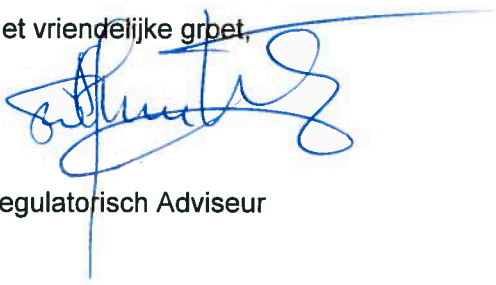 et vriendelijke groet,
egulatorisch Adviseur